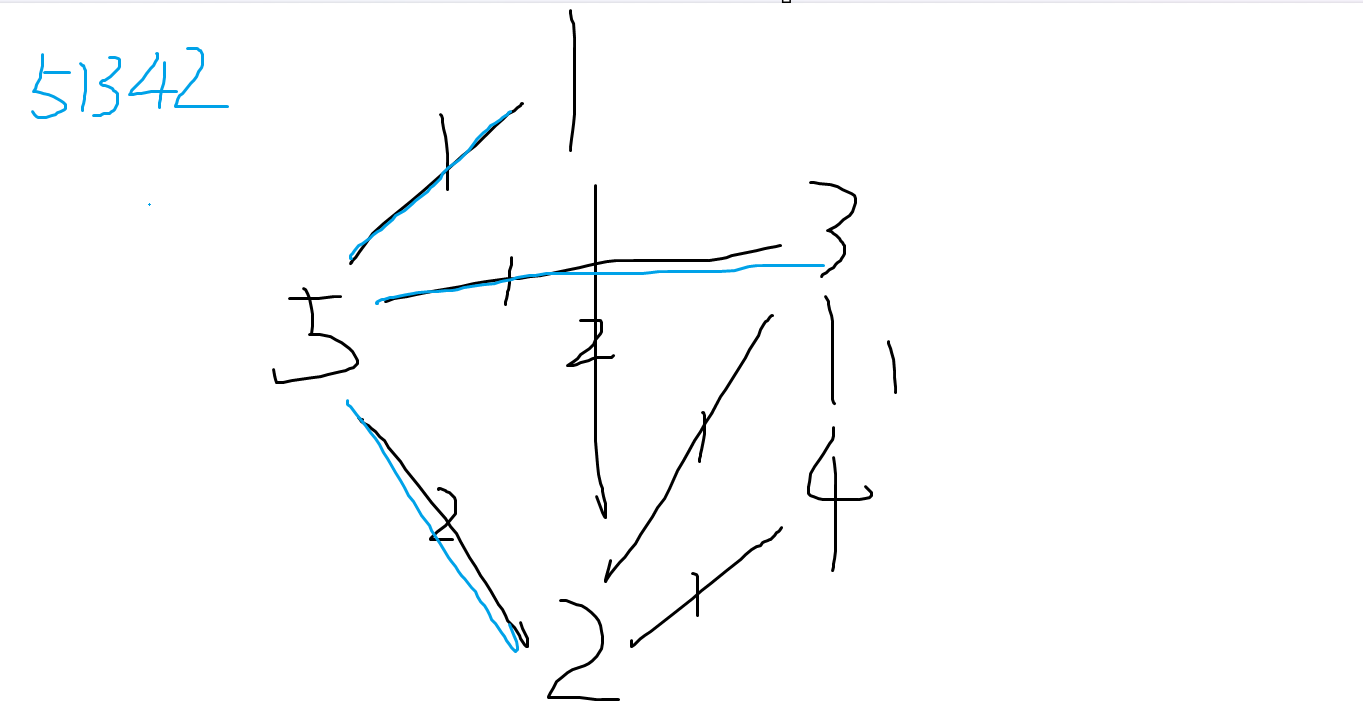 51342
1
1
3
1
5
2
1
1
4
2
1
2